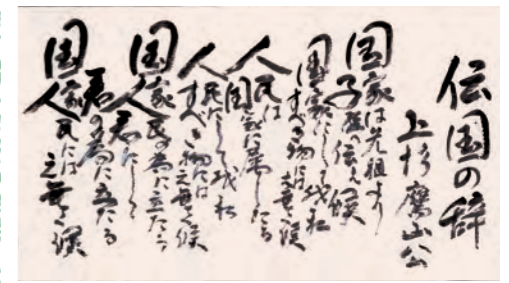 伝国の辞
上杉鷹山公
国家は先祖より
子孫へ伝へ候
国家にして我私
すべき物には之無く候
人民は
国家に属したる
人民にして我私
すべき物には之無く候
国家人民の為に立たる
君にして
君の為に立たる
国家人民には之無く候